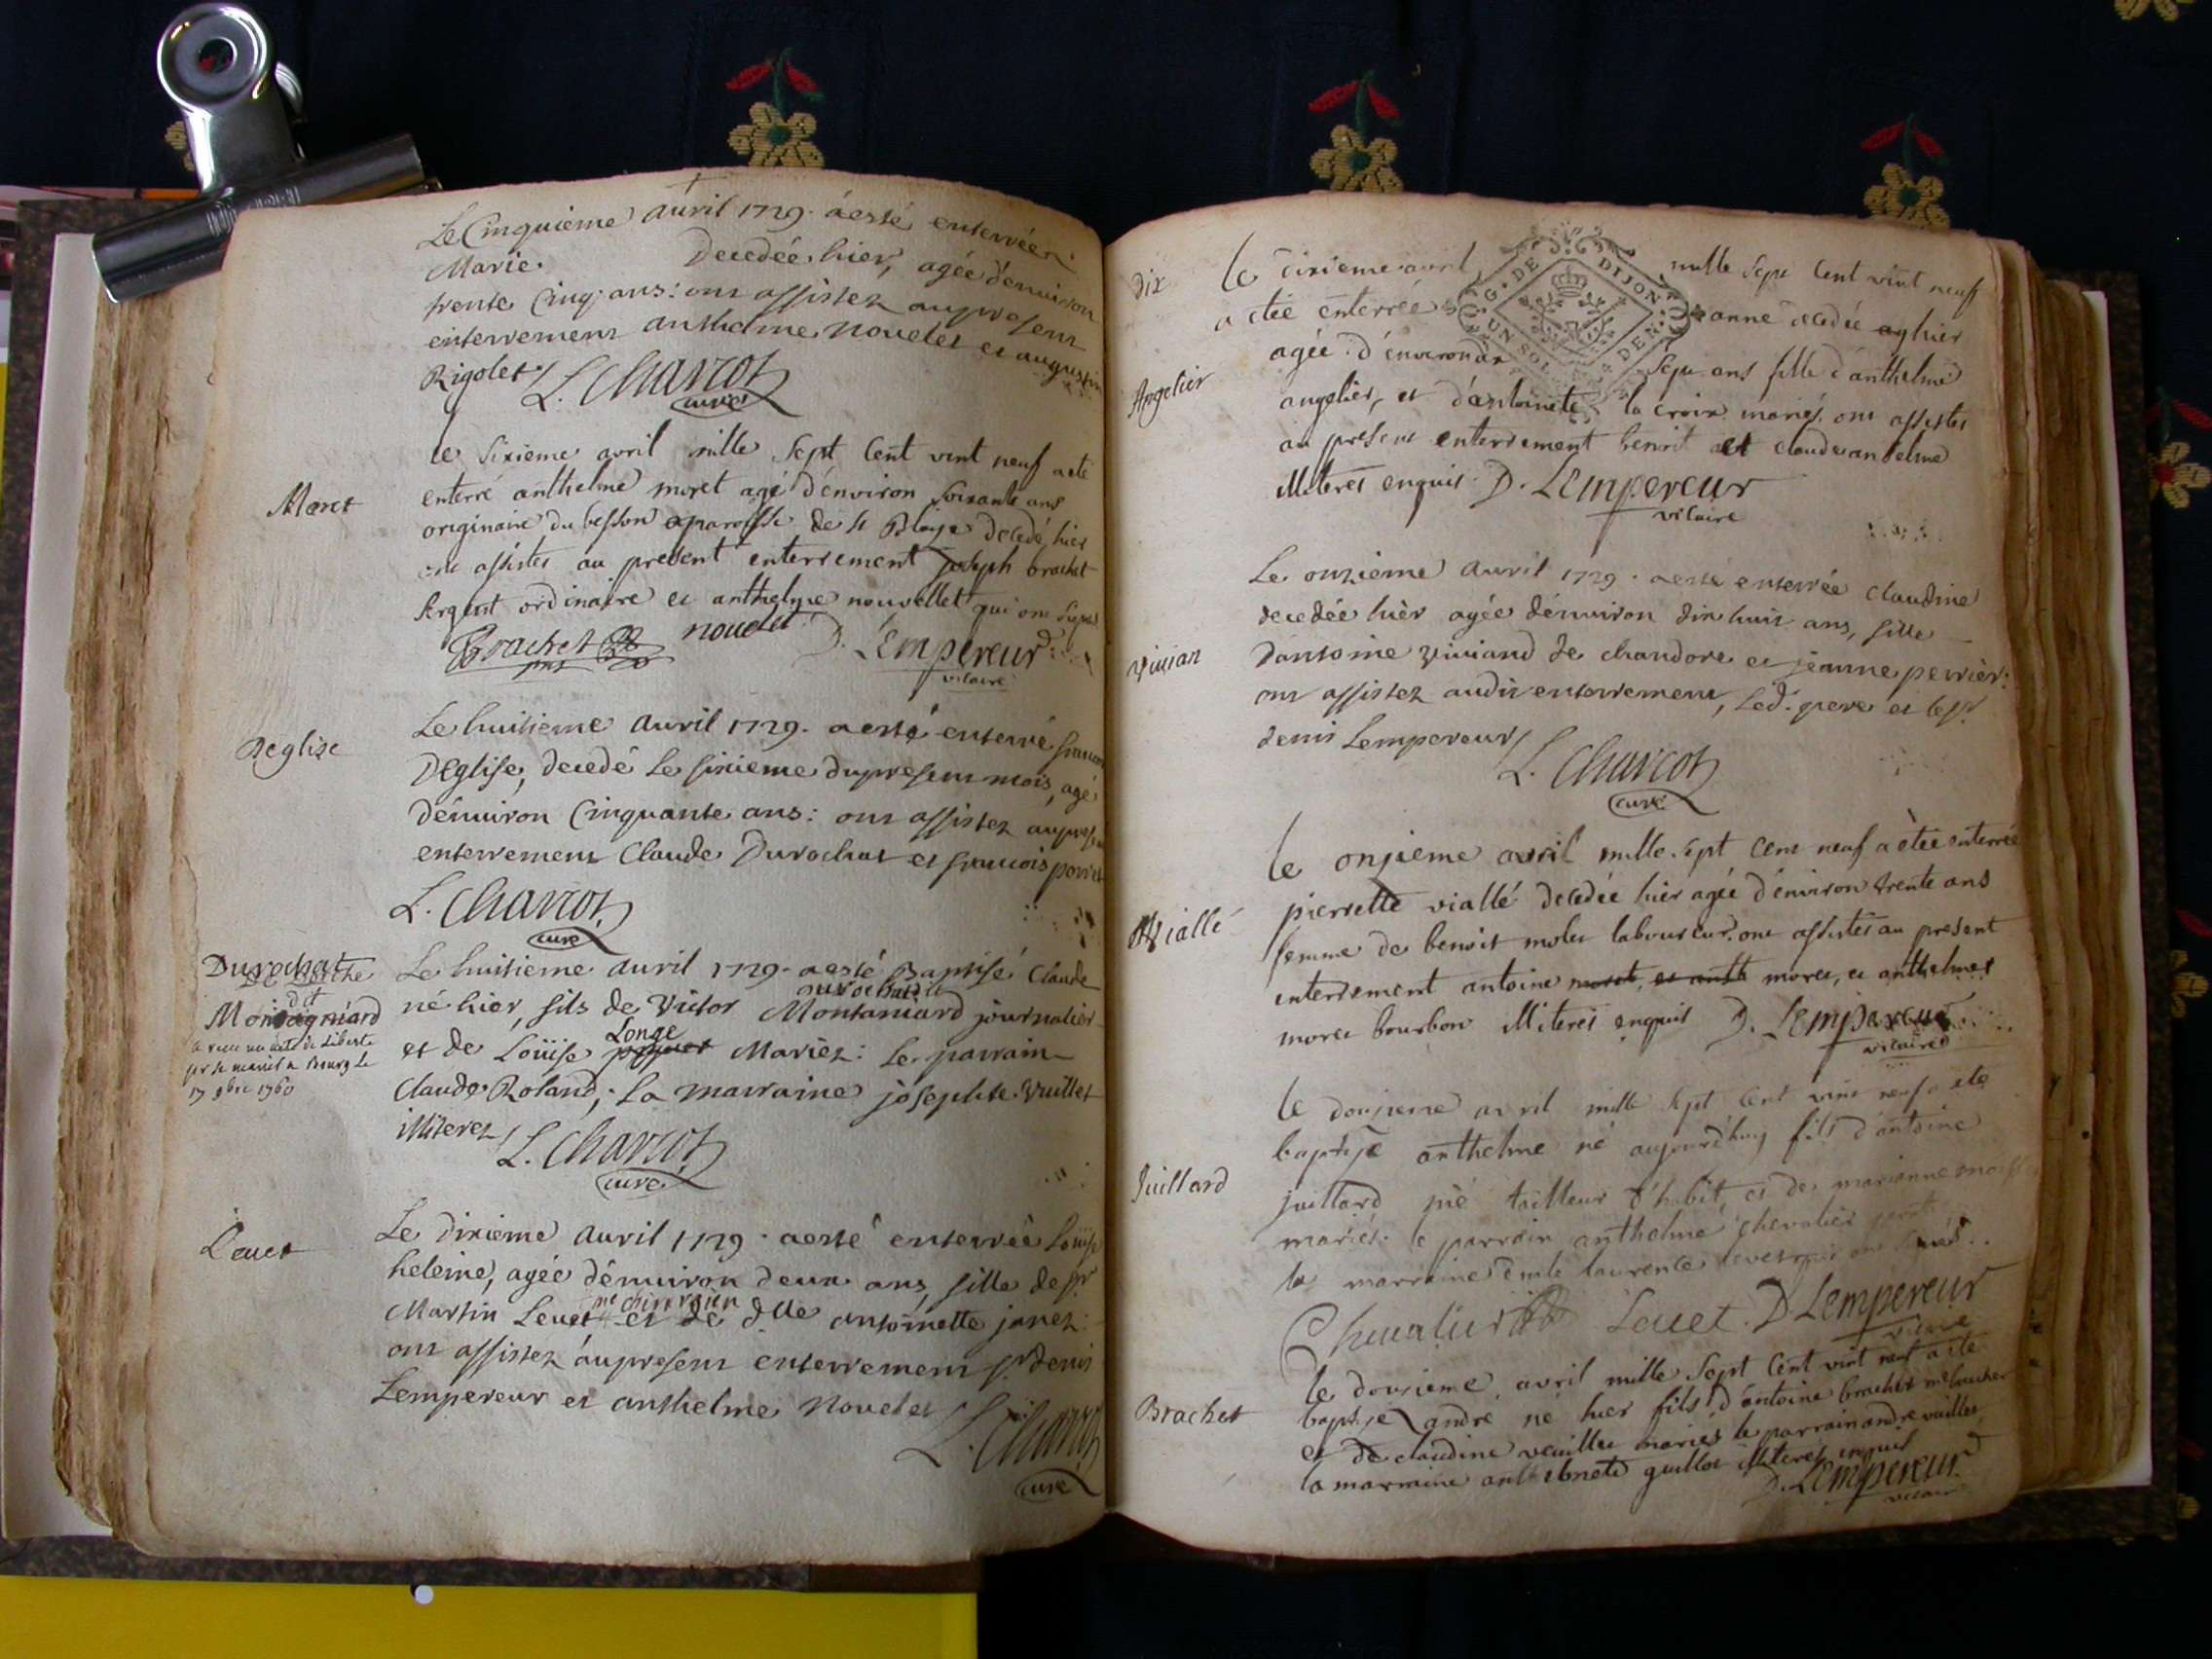 Le Cinquieme avril 1729. a esté enterrée
Marie. Decedée hier, agée d'environ
trente Cinq ans: ont assistez au present
enterrement anthelme Nouelet et augustin
Rigolet. L. Charcot
curé
Moret
le sixieme avril mille sept Cent vint neuf a eté
enterré anthelme moret agé d'environ soixante ans
originaire du besson paroisse de st Blaise decedé hier
ont assistes au present enterrement joseph brachet
sergent ordinaire et anthelme nouvellet qui ont signé
Brachet nouelet D. Lempereur
vicaire
Deglise
Le huitieme avril 1729. a esté enterré francois
Deglise, decedé le sixieme du present mois, agé
d'environ Cinquante ans: ont assistez au present
enterrement Claude Durochat et francois
L. Charcot
curé
Durochat
dit
Montagniard
17 9bre 1760
Le huitieme avril 1729. a esté Baptisé Claude
né hier, fils de Victor Montaniard journalier
et de Loüise Longe Mariez: le parrain
Claude Roland, la marraine josephte Vuillet
illiterez L. Charcot
curé
Levet
Le dixieme avril 1729. a esté enterrée Loüise
heleine, agée d'environ deux ans, fille de sr
me chirurgien
Martin Levet et de dlle antoinette janez:
ont assistez au present enterrement sr denis
Lempereur et anthelme Nouelet L. Charcot
curé
dix
G. DE DIJON
UN SOL DEN.
le dixieme avril mille sept Cent vint neuf
a etée enterrée anne decedée hier
Angelier
agée d'environ sept ans fille d'anthelme
angelier, et d'antoinete la croix mariés. ont assistes
au present enterrement benoit et claude anthelme
illiteres enquis D. Lempereur
vicaire
Vivian
Le onzieme avril 1729. a esté enterrée Claudine
decedée hier agée d'environ dix huit ans, fille
d'antoine Viviand de chandore et jeanne perrier:
ont assistez audit enterrement, led. pere et le sr
denis Lempereur L. Charcot
curé
Viallé
le onzieme avril mille sept Cent neuf a etée enterrée
pierrette viallé decedée hier agée d'environ trente ans
femme de benoit molet laboureur. ont assistés au present
enterrement antoine moret, et anthelme
moret bourbon illiterés enquis D. Lempereur
vicaire
Juillard
le douzieme avril mille sept Cent vint neuf a eté
baptisé anthelme né aujourd'huy fils d'antoine
juillard tailleur d'habit, et de marianne
mariés. le parrain anthelme chevalier
la marraine laurence levet
Chevalier Levet D Lempereur
vicaire
Brachet
le douzieme avril mille sept Cent vint neuf a eté
baptisé andré né hier fils d'antoine brachet me boucher
et de claudine vuillet mariés le parrain andré vuillet
la marraine guillot illiterés enquis
D. Lempereur
vicaire